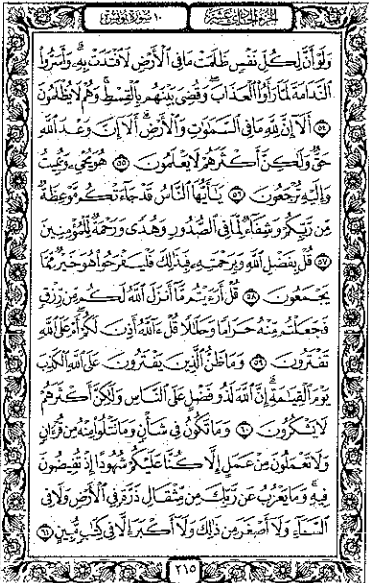 الجزء الحادي عشر
١٠ سورة يونس
وَلَوْ أَنَّ لِكُلِّ نَفْسٍ ظَلَمَتْ مَا فِي الْأَرْضِ لَافْتَدَتْ بِهِ ۗ وَأَسَرُّوا
النَّدَامَةَ لَمَّا رَأَوُا الْعَذَابَ ۖ وَقُضِيَ بَيْنَهُم بِالْقِسْطِ ۚ وَهُمْ لَا يُظْلَمُونَ
﴿٥٤﴾ أَلَا إِنَّ لِلَّهِ مَا فِي السَّمَاوَاتِ وَالْأَرْضِ ۗ أَلَا إِنَّ وَعْدَ اللَّهِ
حَقٌّ وَلَٰكِنَّ أَكْثَرَهُمْ لَا يَعْلَمُونَ ﴿٥٥﴾ هُوَ يُحْيِي وَيُمِيتُ
وَإِلَيْهِ تُرْجَعُونَ ﴿٥٦﴾ يَا أَيُّهَا النَّاسُ قَدْ جَاءَتْكُم مَّوْعِظَةٌ
مِّن رَّبِّكُمْ وَشِفَاءٌ لِّمَا فِي الصُّدُورِ وَهُدًى وَرَحْمَةٌ لِّلْمُؤْمِنِينَ
﴿٥٧﴾ قُلْ بِفَضْلِ اللَّهِ وَبِرَحْمَتِهِ فَبِذَٰلِكَ فَلْيَفْرَحُوا هُوَ خَيْرٌ مِّمَّا
يَجْمَعُونَ ﴿٥٨﴾ قُلْ أَرَأَيْتُم مَّا أَنزَلَ اللَّهُ لَكُم مِّن رِّزْقٍ
فَجَعَلْتُم مِّنْهُ حَرَامًا وَحَلَالًا قُلْ آللَّهُ أَذِنَ لَكُمْ ۖ أَمْ عَلَى اللَّهِ
تَفْتَرُونَ ﴿٥٩﴾ وَمَا ظَنُّ الَّذِينَ يَفْتَرُونَ عَلَى اللَّهِ الْكَذِبَ
يَوْمَ الْقِيَامَةِ ۗ إِنَّ اللَّهَ لَذُو فَضْلٍ عَلَى النَّاسِ وَلَٰكِنَّ أَكْثَرَهُمْ
لَا يَشْكُرُونَ ﴿٦٠﴾ وَمَا تَكُونُ فِي شَأْنٍ وَمَا تَتْلُو مِنْهُ مِن قُرْآنٍ
وَلَا تَعْمَلُونَ مِنْ عَمَلٍ إِلَّا كُنَّا عَلَيْكُمْ شُهُودًا إِذْ تُفِيضُونَ
فِيهِ ۚ وَمَا يَعْزُبُ عَن رَّبِّكَ مِن مِّثْقَالِ ذَرَّةٍ فِي الْأَرْضِ وَلَا فِي
السَّمَاءِ وَلَا أَصْغَرَ مِن ذَٰلِكَ وَلَا أَكْبَرَ إِلَّا فِي كِتَابٍ مُّبِينٍ ﴿٦١﴾
٢١٥